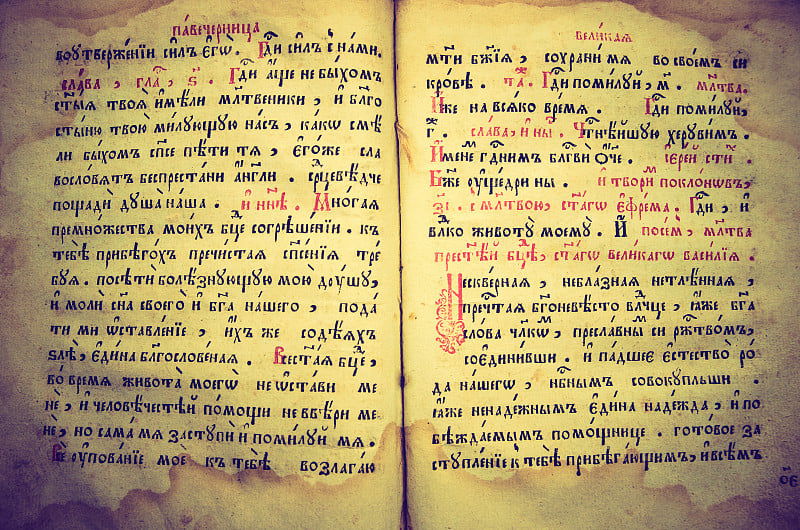 па́вечерница
боутвержѐнїи си́лъ є҆гѡ̀. Гдⷭ҇и си́лъ с на́ми.
сла́ва, гла́, ѕ҃. Гдⷭ҇и а҆́ще не бы́хомъ
ст҃ы́ѧ твоѧ̀ и҆мѣ́ли мл҃твеники, и҆ бл҃го
сты́ню твою̀ ми́лующую на́съ, ка́кѡ смѣ́
ли бы́хомъ сп҃се пѣ́ти тѧ̀, є҆го́же сла
вослоВѧ́тъ беспреста́ни а҆́нг҃ли. срⷣцевѣ́дче
пощадѝ дꙋ́ша на́ша. и҆ нн҃ѣ. Мно́гаѧ
премно́жества мои́хъ бц҃е согрѣше́нїи. къ
тебѣ̀ прибѣго́хъ пречи́стаѧ сп҃се́нїѧ трѐ
бꙋѧ. посѣтѝ болѣ́знꙋющую мою̀ дꙋ́шꙋ,
и҆ молѝ сн҃а своего̀ и҆ бг҃а на́шего, пода́
ти ми ѡ҆ставле́нїе, и҆́хъ же содѣ́ѧхъ
ѕлѣ̀, є҆ди́на бл҃гослове́наѧ. Всест҃а́ѧ бц҃е,
во́ времѧ живота̀ моегѡ̀ не ѡ҆ста́ви ме
нѐ, и҆ человѣ́честѣй по́мощи не ввѣ́ри ме
нѐ, но сама̀ мѧ застꙋпѝ и҆ поми́лꙋй мѧ.
Всѐ ᲂу҆пова́нїе моѐ къ тебѣ̀ возлага́ю
вели́каѧ
мт҃и бж҃їѧ, сохрани́ мѧ во свое́мъ си
кро́вѣ. та́. Гдⷭ҇и поми́лꙋй, м҃. мл҃тва.
И҆́же на всѧ́ко вре́мѧ. Гдⷭ҇и поми́лꙋй,
г҃. сла́ва, и҆ ны́. Чтⷭ҇нѣ́йшꙋю херꙋви́мъ.
И҆́менемъ гдⷭ҇нимъ бл҃гвѝ ѻ҆́ч҃е. і҆ере́й сти́.
Бж҃е ᲂу҆ще́дри ны̀. и҆ творѝ покло́нѡвъ,
з҃і. с мл҃твою, ст҃а́гѡ є҆фре́ма. Гдⷭ҇и, и҆
влⷣко животꙋ̀ моемꙋ̀. И҆ по́сем, мл҃тва
прест҃ѣ́й бц҃ѣ, ст҃а́гѡ вели́кагѡ васи́лїѧ.
Нескве́рнаѧ, небла́знаѧ нетлѣ́ннаѧ,
пречⷭ҇таѧ бг҃оневѣ́сто влⷣчце, ꙗ҆́же бг҃а
сло́ва чл҃кѡ, пресла́вны си ржⷭ҇тво́мъ,
соедини́вши. и҆ па́дшеє є҆стество̀ ро́
да на́шегѡ, нбⷭ҇нымъ совокꙋ́пльши.
ꙗ҆́же ненаде́жнымъ є҆ди́на наде́жда, и҆ по
бѣжда́емымъ помо́щнице. гото́вое за
стꙋпле́нїе к̾ тебѣ̀ прибѣга́ющимъ, и҆ всѣ́мъ